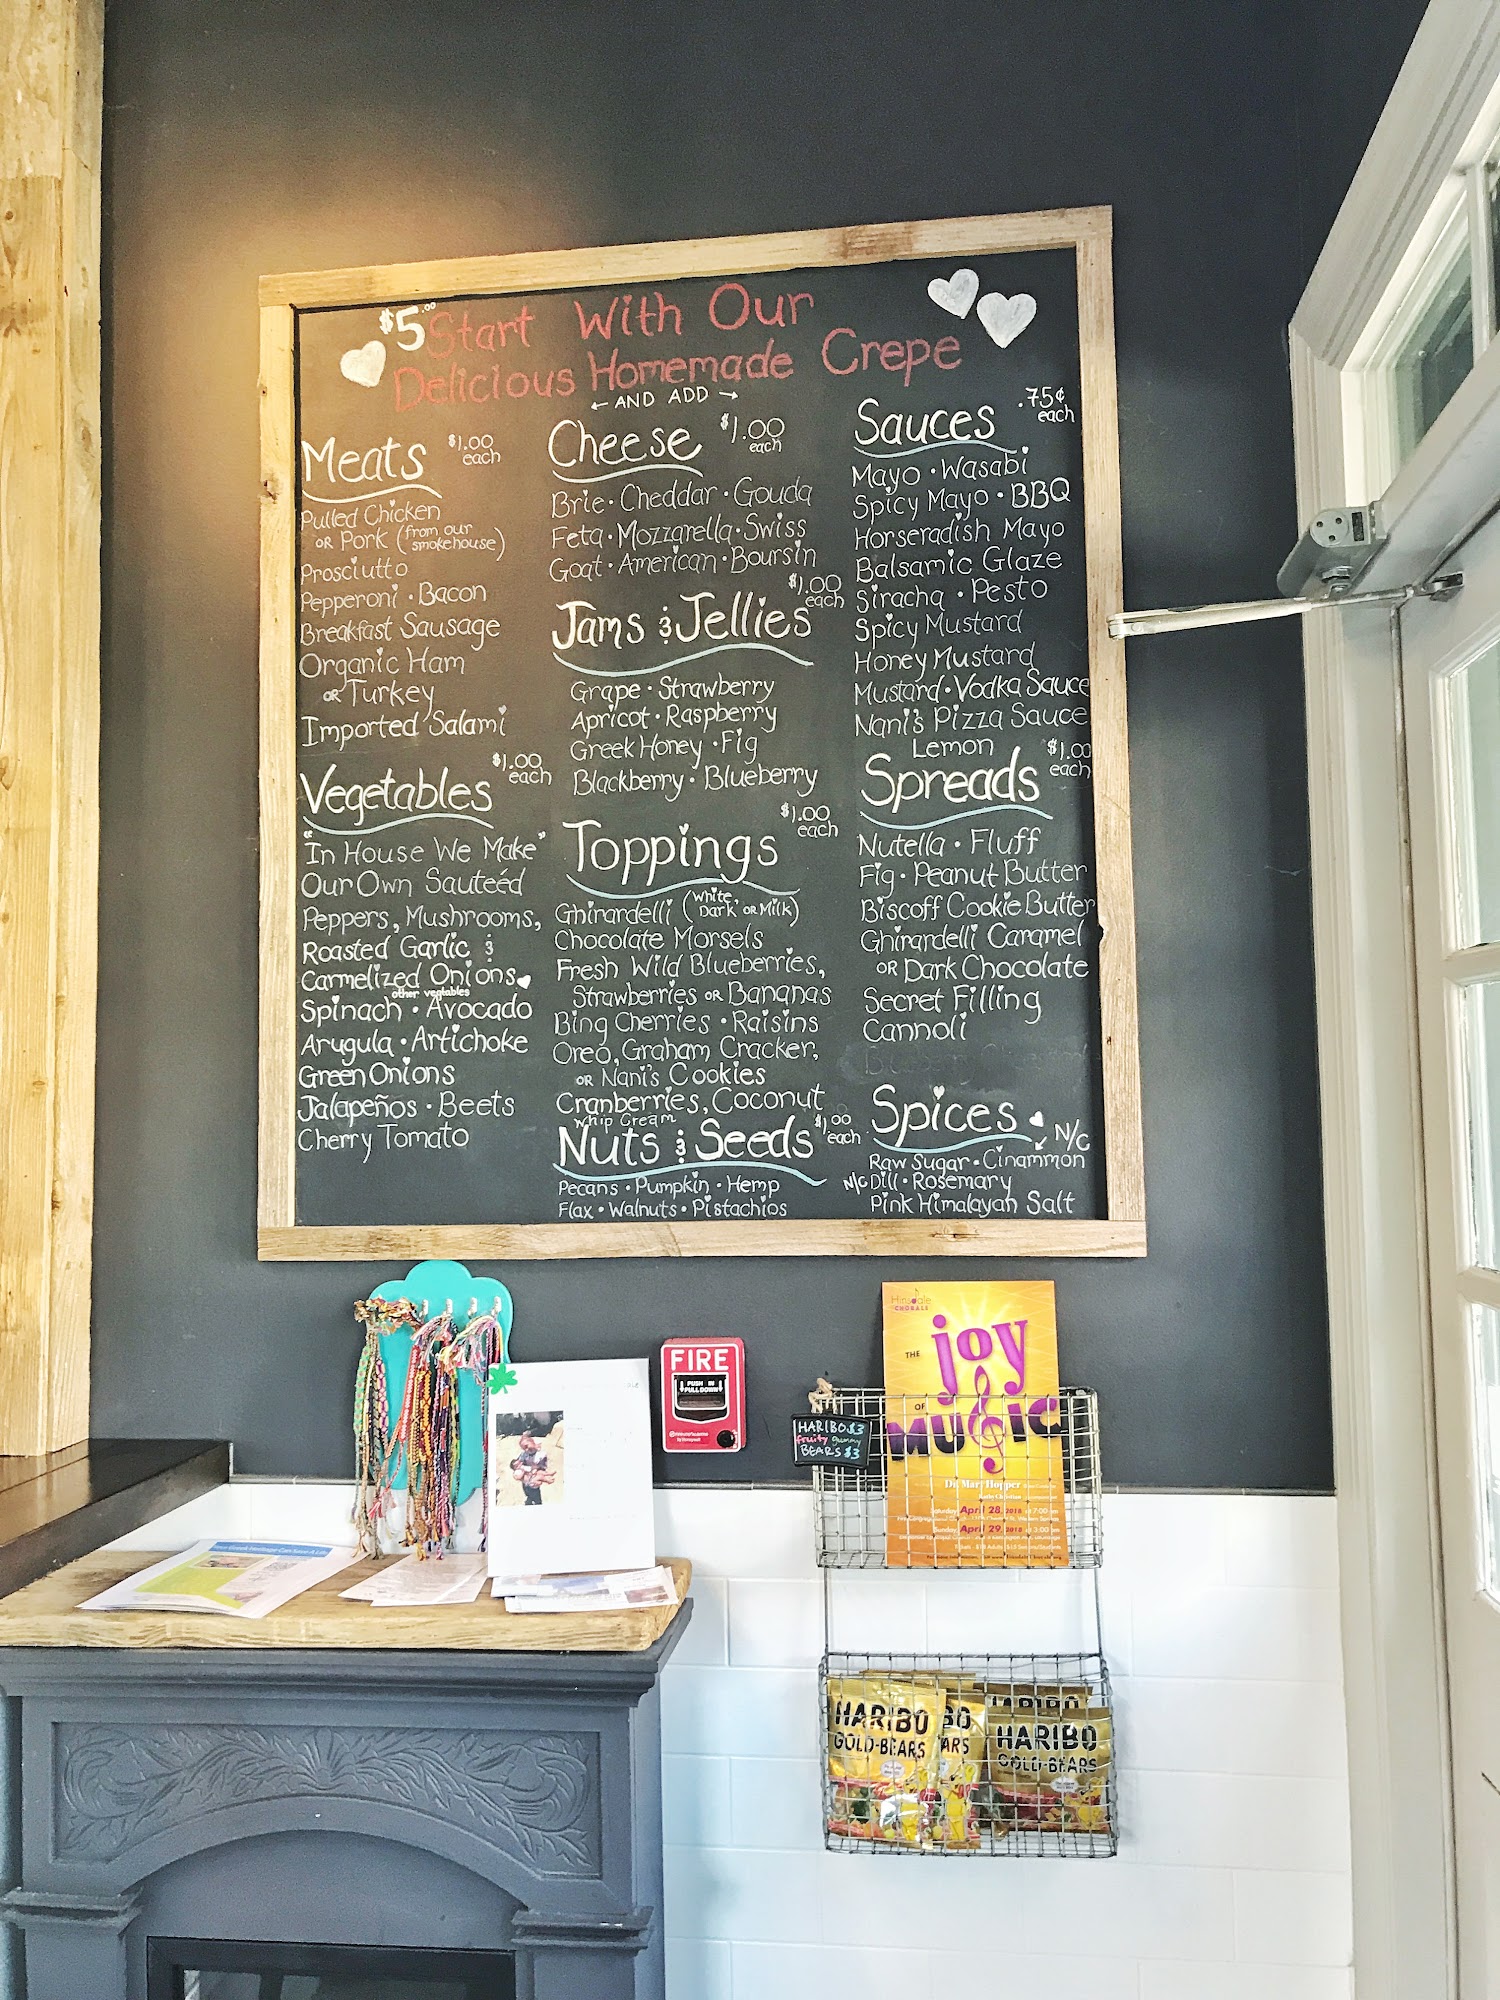 $5.00 Start With Our
Delicious Homemade Crepe
← AND ADD →
Meats $1.00 each
Pulled Chicken
OR Pork (from our smokehouse)
Prosciutto
Pepperoni · Bacon
Breakfast Sausage
Organic Ham
OR Turkey
Imported Salami
Vegetables $1.00 each
"In House We Make"
Our Own Sauteéd
Peppers, Mushrooms,
Roasted Garlic &
Carmelized Onions
other vegtables
Spinach · Avocado
Arugula · Artichoke
Green Onions
Jalapeños · Beets
Cherry Tomato
Cheese $1.00 each
Brie · Cheddar · Gouda
Feta · Mozzarella · Swiss
Goat · American · Boursin
Jams & Jellies $1.00 each
Grape · Strawberry
Apricot · Raspberry
Greek Honey · Fig
Blackberry · Blueberry
Toppings $1.00 each
Ghirardelli (White, Dark, OR Milk)
Chocolate Morsels
Fresh Wild Blueberries,
Strawberries OR Bananas
Bing Cherries · Raisins
Oreo, Graham Cracker,
OR Nani's Cookies
Cranberries, Coconut
Whip Cream
Nuts & Seeds $1.00 each
Pecans · Pumpkin · Hemp
Flax · Walnuts · Pistachios
Sauces .75¢ each
Mayo · Wasabi
Spicy Mayo · BBQ
Horseradish Mayo
Balsamic Glaze
Siracha · Pesto
Spicy Mustard
Honey Mustard
Mustard · Vodka Sauce
Nani's Pizza Sauce
Lemon
Spreads $1.00 each
Nutella · Fluff
Fig · Peanut Butter
Biscoff Cookie Butter
Ghirardelli Caramel
OR Dark Chocolate
Secret Filling
Cannoli
Spices N/C
Raw Sugar · Cinammon
N/C Dill · Rosemary
Pink Himalayan Salt
FIRE
PUSH IN
PULL DOWN
HARIBO $3
fruity gummy
BEARS $3
Hinsdale
CHORALE
THE joy
OF
MUSIC
April 28, 2018 at 7:00 pm
Sunday April 29, 2018 at 3:00 pm
HARIBO
GOLD-BEARS
BO
ARS
HARIBO
HARIBO
GOLD-BEARS